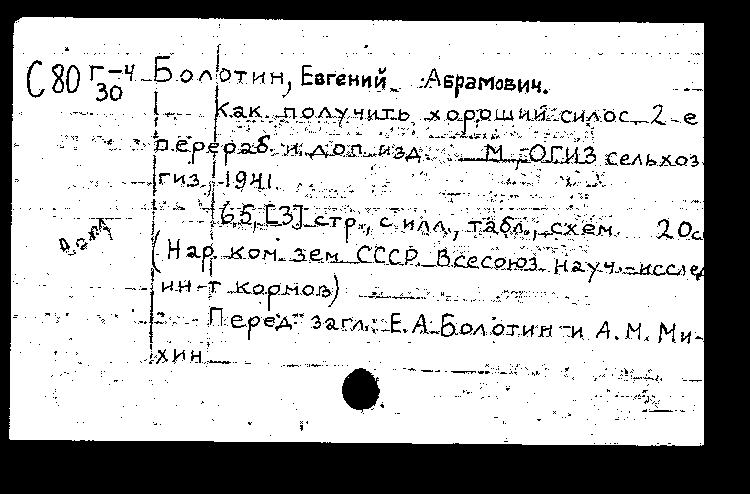 С80 Г-4 Болотин, Евгений Абрамович.
30
Как получить хороший силос 2-е
перераб. и доп. изд. М., ОГИЗ сельхоз
гиз, 1941.
65, [3] стр., с илл., табл., схем. 20с
(Нар. ком. зем. СССР. Всесоюз. науч.-исслед
ин-т кормов)
Перед загл.: Е.А. Болотин и А.М. Ми-
хин